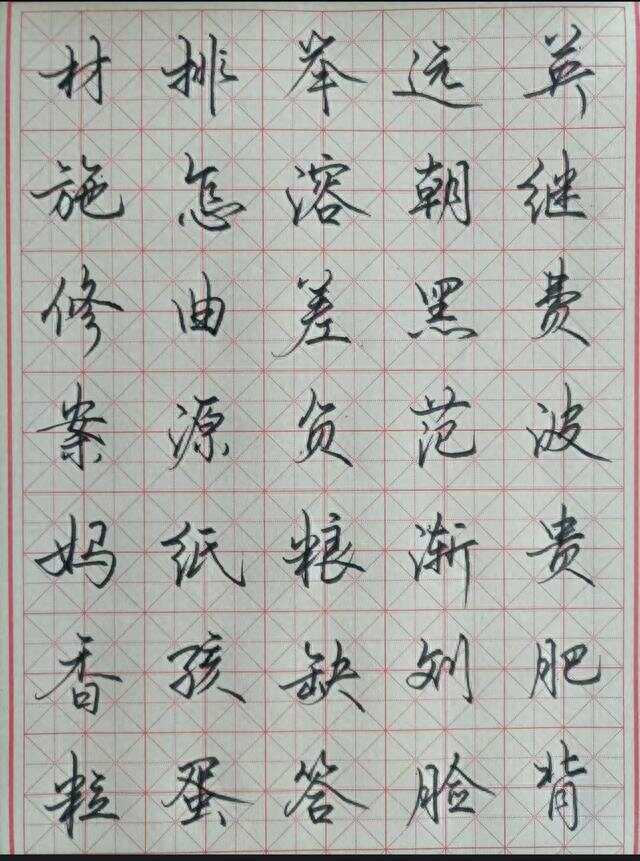 材排举远英
施怎溶朝继
修曲差黑费
案源负范波
妈纸粮渐贵
香孩缺刘肥
粒蛋答脸背